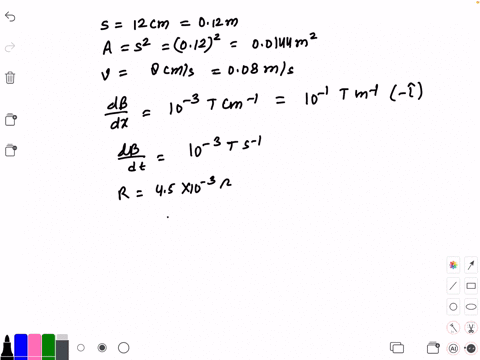 s = 12cm = 0.12m
A = s² = (0.12)² = 0.0144 m²
v = 8 cm/s = 0.08 m/s
dB/dx = 10⁻³ T cm⁻¹ = 10⁻¹ T m⁻¹ (-î)
dB/dt = 10⁻³ T s⁻¹
R = 4.5 × 10⁻³ Ω